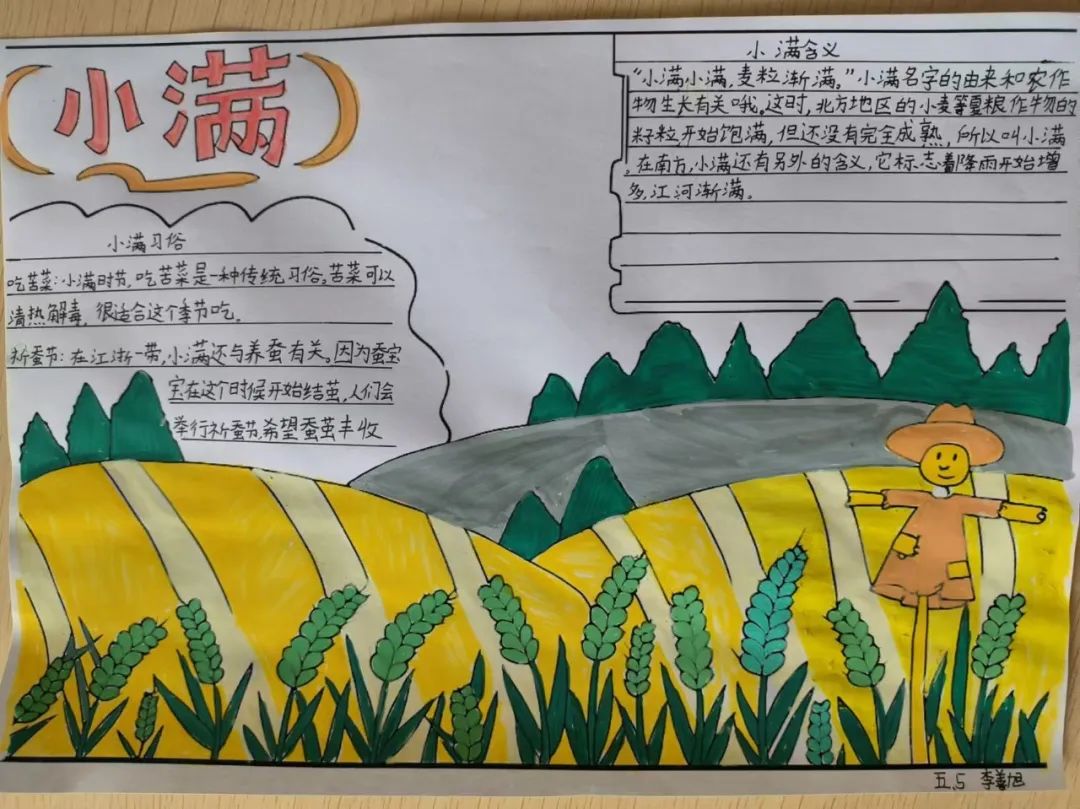 小满
小满含义
“小满小满，麦粒渐满。”小满名字的由来和农作
物生长有关哦。这时，北方地区的小麦等夏粮作物的
籽粒开始饱满，但还没有完全成熟，所以叫小满
。在南方，小满还有另外的含义，它标志着降雨开始增
多，江河渐满。
小满习俗
吃苦菜：小满时节，吃苦菜是一种传统习俗。苦菜可以
清热解毒，很适合这个季节吃。
祈蚕节：在江浙一带，小满还与养蚕有关。因为蚕宝
宝在这个时候开始结茧，人们会
举行祈蚕节，希望蚕茧丰收
五.5 李善旭